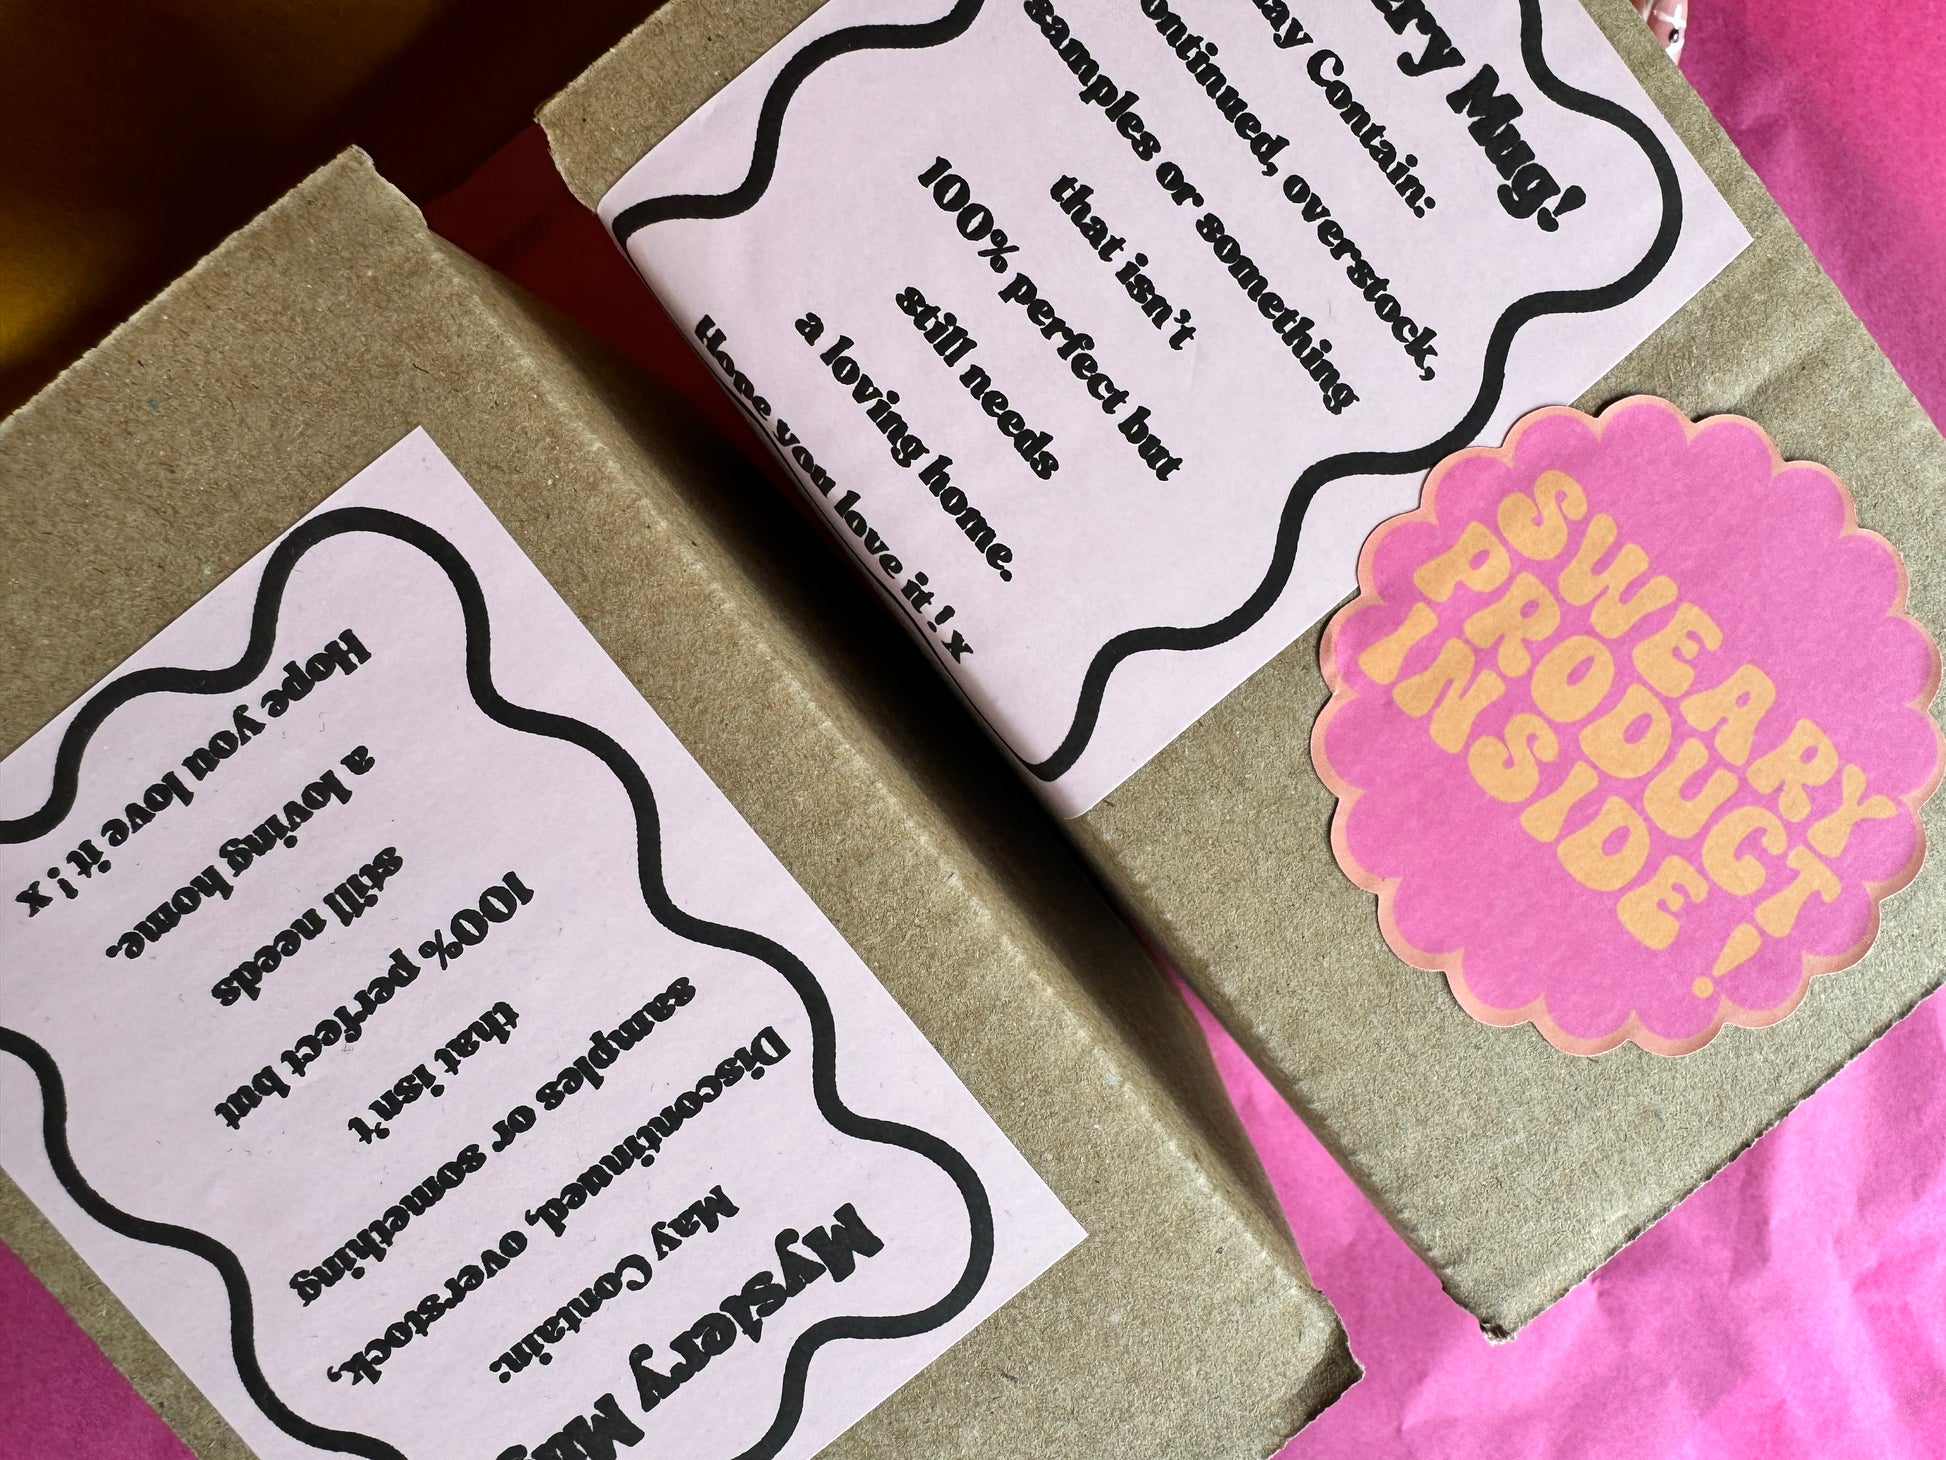 ery Mug!
ay Contain:
ontinued, overstock,
samples or something
that isn't
100% perfect but
still needs
a loving home.
Hope you love it! x
SWEARY
PRODUCT
INSIDE!
Mystery Mug
May Contain:
Discontinued, overstock,
samples or something
that isn't
100% perfect but
still needs
a loving home.
Hope you love it! x